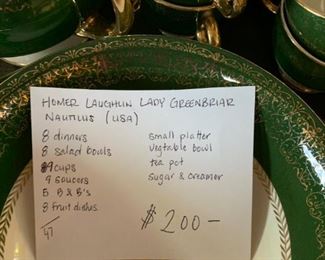 HOMER LAUGHLIN LADY GREENBRIAR
NAUTILUS (USA)
8 dinners
8 salad bowls
9 cups
9 saucers
5 B & B's
8 fruit dishes
47
small platter
vegtable bowl
tea pot
sugar & creamer
$200-